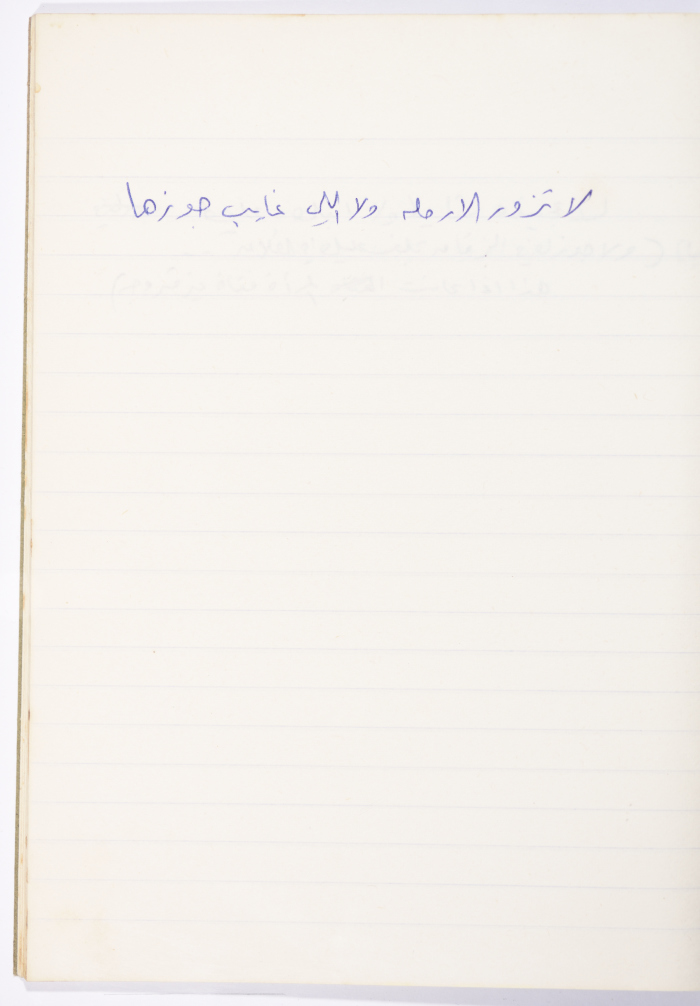 لا تزور الارمله ولا اللي غايب جوزها